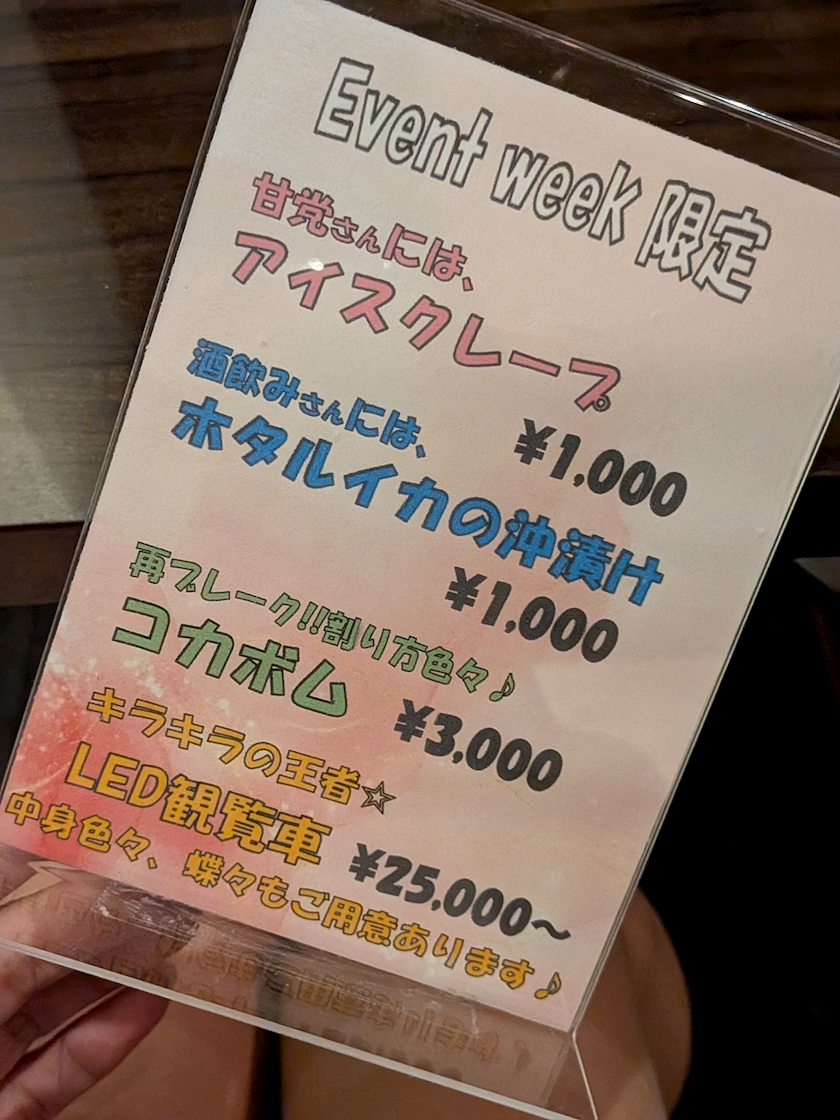 Event week 限定
甘党さんには、
アイスクレープ
¥1,000
酒飲みさんには、
ホタルイカの沖漬け
¥1,000
再ブレーク!!割り方色々♪
コカボム
¥3,000
キラキラの王者☆
LED観覧車
¥25,000〜
中身色々、蝶々もご用意あります♪